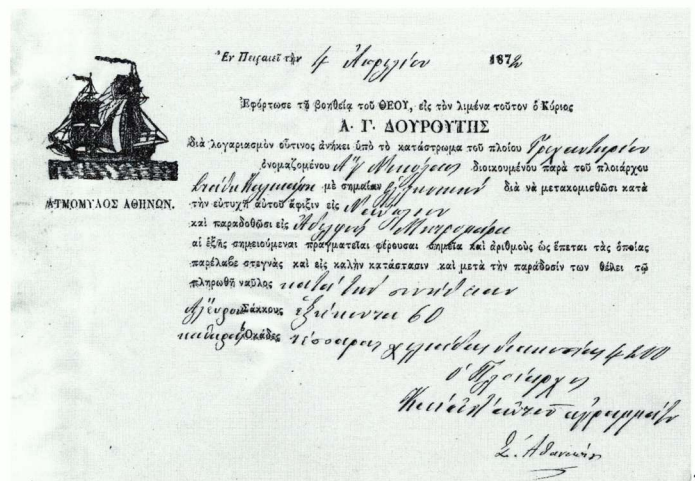 Ἐν Πειραιεῖ τὴν 4 Απριλίου 1872
Ἐφόρτωσε τῇ βοηθείᾳ τοῦ ΘΕΟΥ, εἰς τὸν λιμένα τοῦτον ὁ Κύριος
Α. Γ. ΔΟΥΡΟΥΤΗΣ
διὰ λογαριασμὸν οὕτινος ἀνήκει ὑπὸ τὸ κατάστρωμα τοῦ πλοίου
ὀνομαζομένου Αγ Νικόλαος διοικουμένου παρὰ τοῦ πλοιάρχου
μὲ σημαίαν Ελληνικὴν διὰ νὰ μετακομισθῶσι κατὰ
τὴν εὐτυχῆ αὐτοῦ ἄφιξιν εἰς Ναύπλιον
καὶ παραδοθῶσι εἰς Αδελφοὺς
αἱ ἑξῆς σημειούμεναι πραγματεῖαι φέρουσαι σημεῖα καὶ ἀριθμοὺς ὡς ἕπεται τὰς ὁποίας
παρέλαβε στεγνὰς καὶ εἰς καλὴν κατάστασιν καὶ μετὰ τὴν παράδοσίν των θέλει τῷ
πληρωθῆ ναῦλος κατὰ τὴν συνήθειαν
Αλεύρου Σάκκους ἑξήκοντα 60
καθαραὶ Ὀκάδες τέσσαρας χιλιάδας διακοσίας 4200
ὁ Πλοίαρχος
ἀγραμμάτου
ΑΤΜΟΜΥΛΟΣ ΑΘΗΝΩΝ.